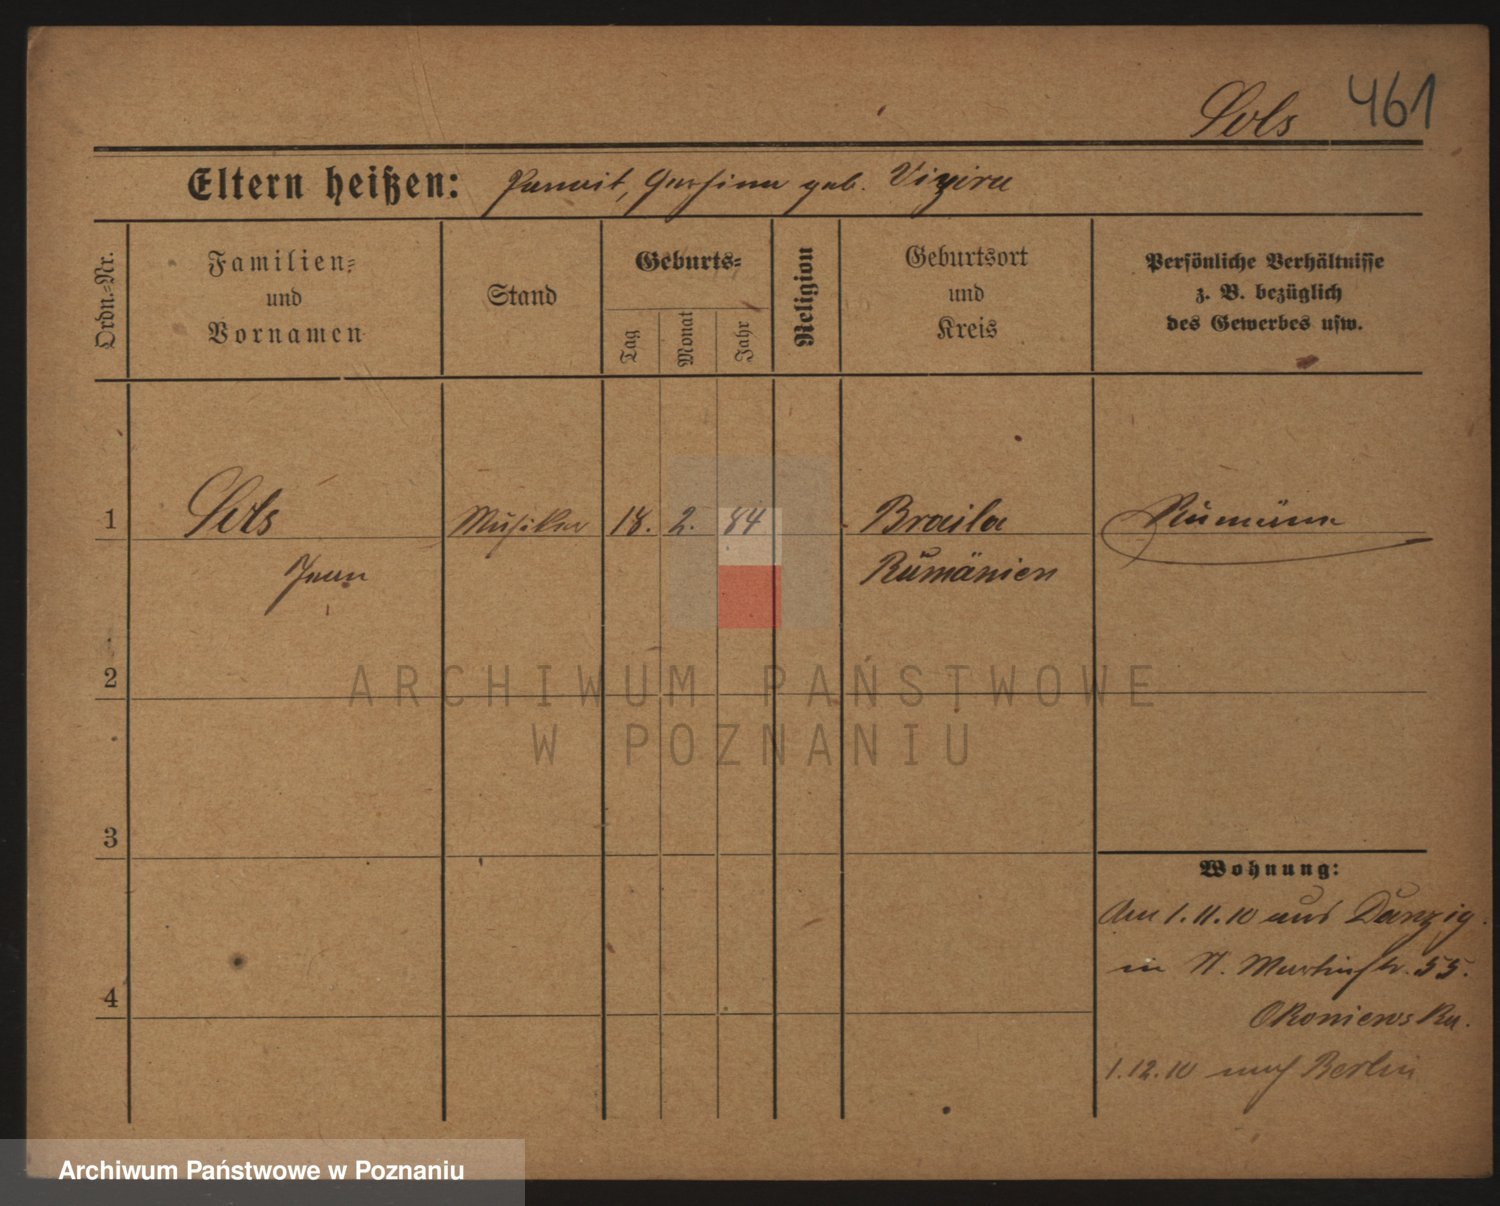 Sols 461
Eltern heißen: Panait, geb. Viziru
Ordn.-Nr.
Familien-
und
Vornamen
Stand
Geburts-
Tag
Monat
Jahr
Religion
Geburtsort
und
Kreis
Persönliche Verhältnisse
z. B. bezüglich
des Gewerbes usw.
1 Sols Musiker 18. 2. 84 Braila Rumäne
Jean Rumänien
2
ARCHIWUM PAŃSTWOWE
W POZNANIU
3
Wohnung:
Am 1.11.10 aus Danzig.
in St. Martinstr. 55.
4
Okoniewska.
1.12.10 nach Berlin
Archiwum Państwowe w Poznaniu